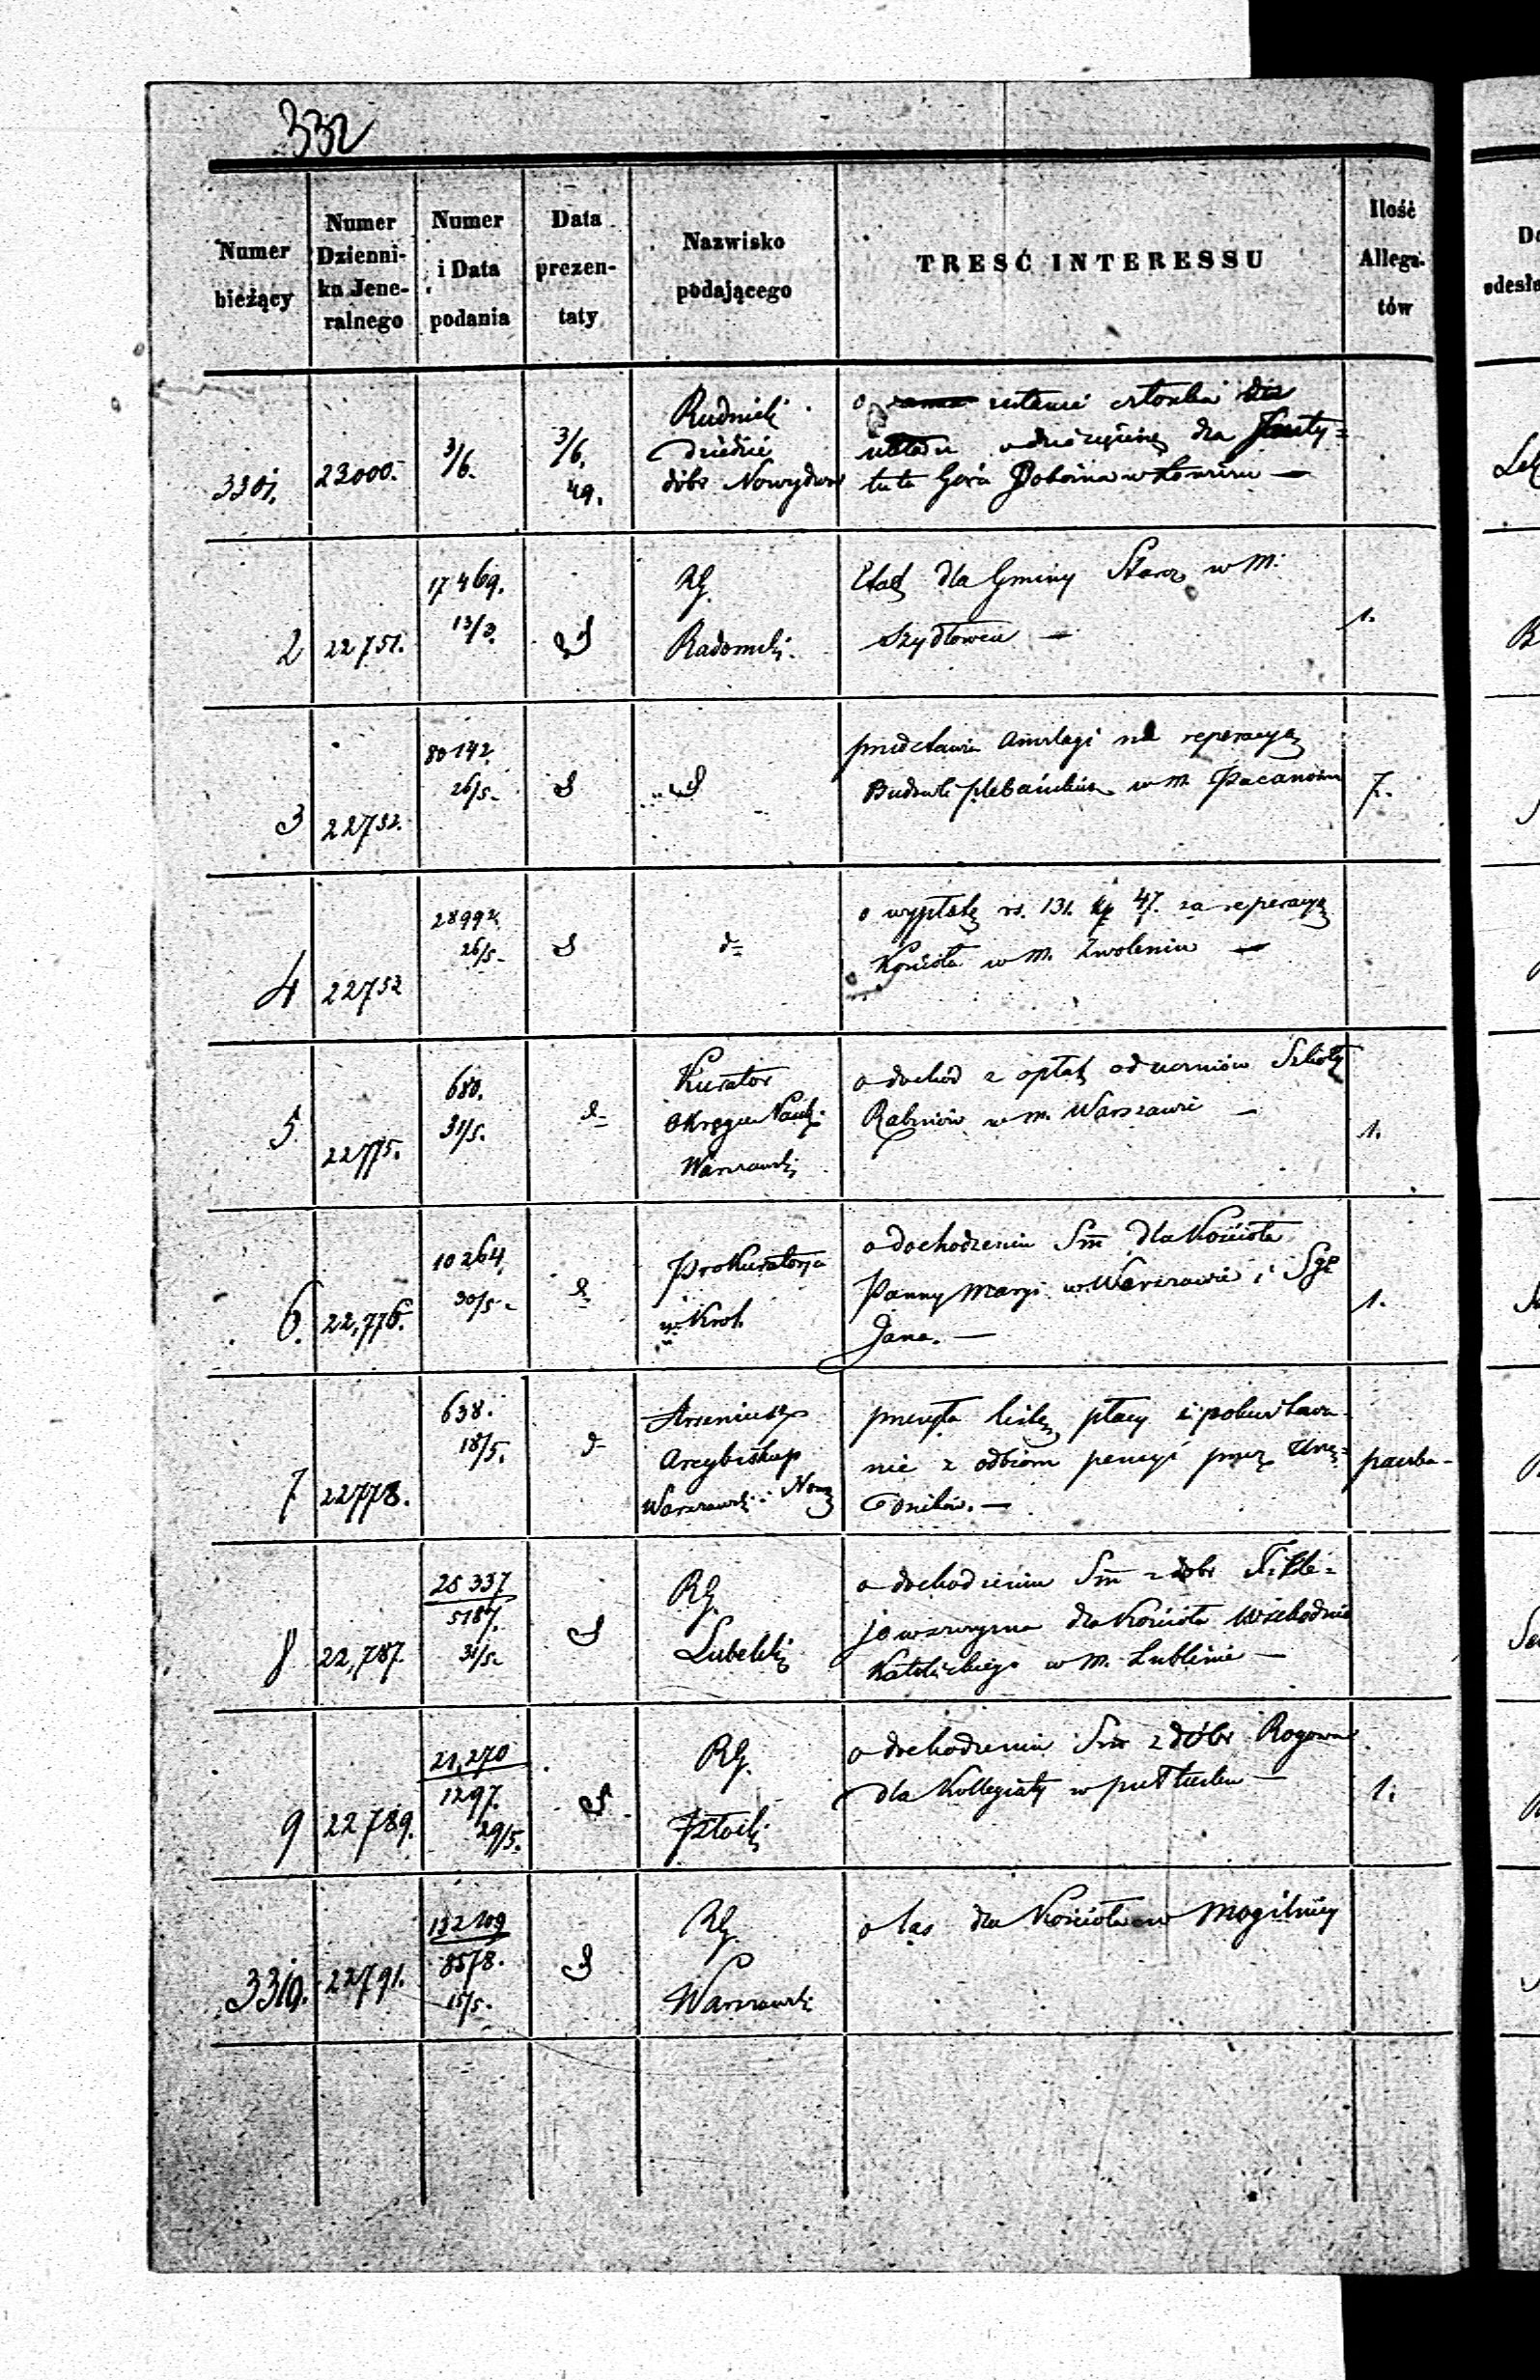 332
Numer bieżący
Numer Dzienni- ka Jene- ralnego
Numer i Data podania
Data prezen- taty
Nazwisko podającego
TREŚĆ INTERESSU
Ilość Allega- tów
3301. 23000. 3/6. 3/6. 49.
Rudnicki
Dziedzic
dóbr Nowydwór
o członka
układu o dla Insty=
tutu Góra
2 22751. 17469. 13/3. d
RG.
Radomski.
Etat dla Gminy Staroz. w m.
Szydłowcu —
1.
3 22752. 80142. 26/5. d
d
przedstawia anszlagi na reperacyą
Budowli plebańskich w m. Pacanowie
7.
4 22753 28992. 26/5. d
d=
o wypłatę rs. 131. kp 47. za reperacyą
Kościoła w m. Zwoleniu —
5. 22775. 680. 31/5. d=
Kurator
Okręgu Nauk.
Warszawski
o dochód z opłat od uczniów Szkoły
Rabinów w m. Warszawie —
1.
6. 22,776. 10264. 30/5. d=
Prokuratorja
w Krol.
o dochodzeniu Sm̄ dla Kościoła
Panny Maryi w Warszawie i Sgo
Jana. —
1.
7 22778. 638. 18/5. d=
Arseniusz
Arcybiskup
Warszawski i Nowg
przesyła listę płacy i pokwitowa-
nie z odbioru pensyi przez Urzę=
dników. —
paczka-
8 22,787. 25337 5187. 31/5. d
RG.
Lubelski
o dochodzeniu Sm̄ z dóbr
dla Kościoła Wschodnio
Katolickiego w m. Lublinie —
9 22789. 21,270 1297. 29/5. d
RG.
Płocki
o dochodzeniu Sm̄ z dóbr Rogowa
dla Kollegiaty w Pułtusku —
1.
3310. 22791. 132109 8578. 15/5. d
RG.
Warszawski
o las dla Kościoła w Mogilnicy